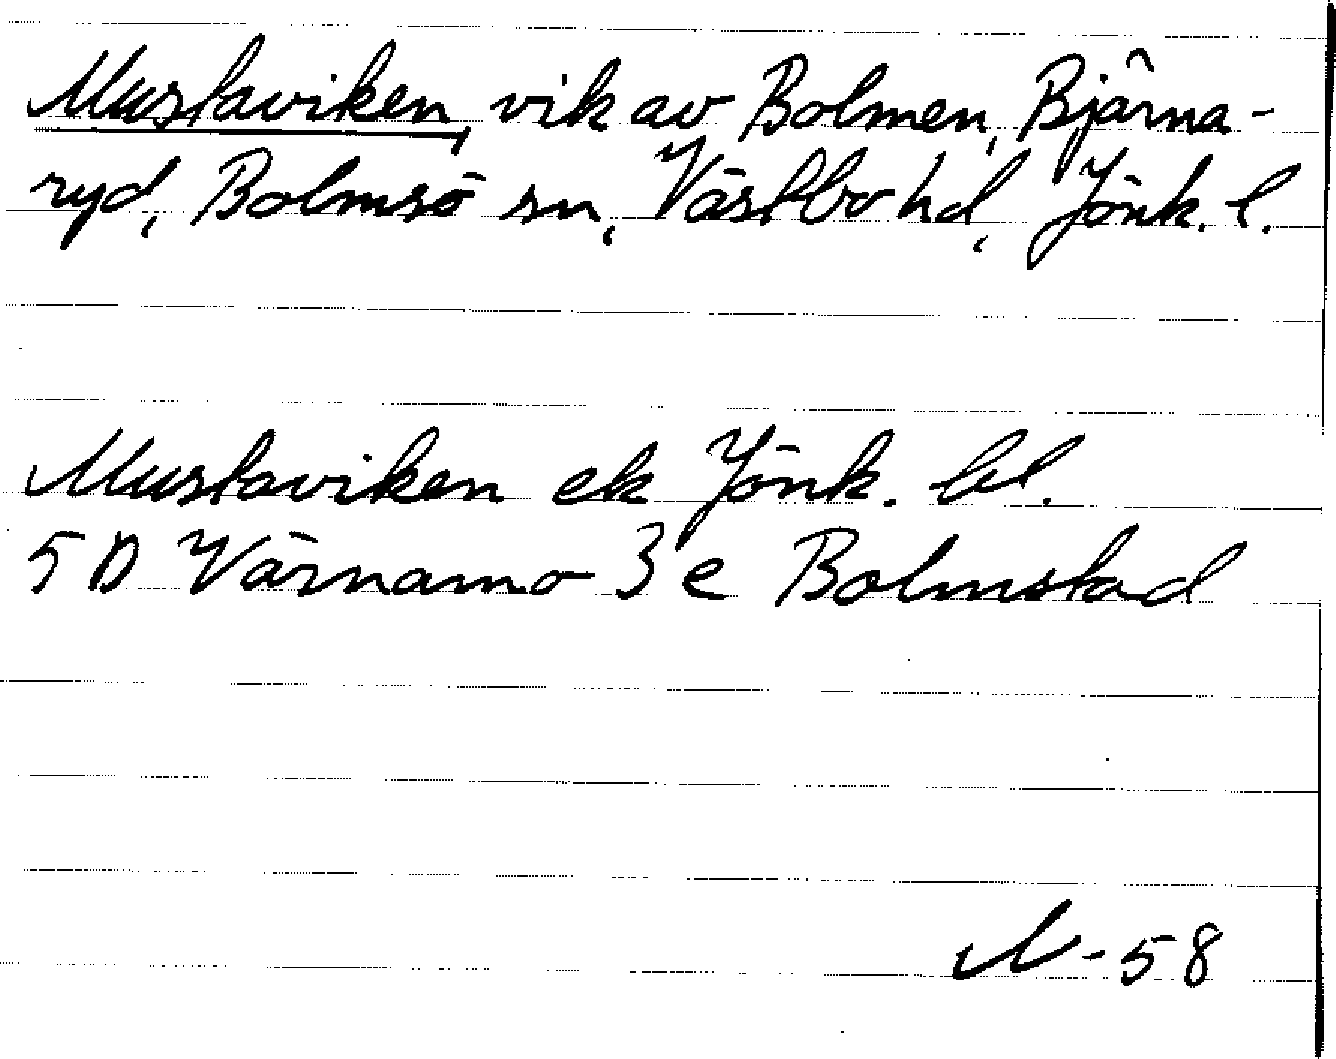 Mustaviken, vik av Bolmen, Bjärna-
ryd, Bolmsö sn, Västbo hd, Jönk. l.
Mustaviken ek Jönk. bl.
5D Värnamo 3e Bolmstad
N-58